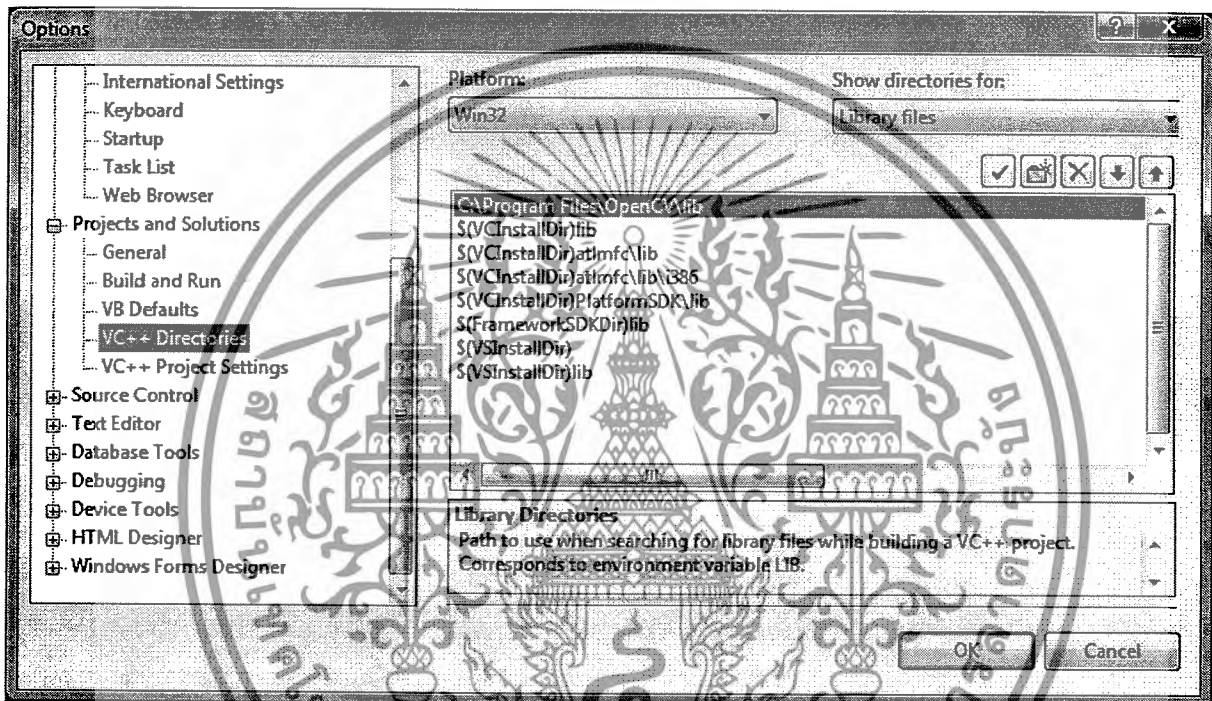 Options
International Settings
Keyboard
Startup
Task List
Web Browser
Projects and Solutions
General
Build and Run
VB Defaults
VC++ Directories
VC++ Project Settings
Source Control
Text Editor
Database Tools
Debugging
Device Tools
HTML Designer
Windows Forms Designer
Platform:
Win32
Show directories for:
Library files
C:\Program Files\OpenCV\lib
$(VCInstallDir)lib
$(VCInstallDir)atlmfc\lib
$(VCInstallDir)atlmfc\lib\i386
$(VCInstallDir)PlatformSDK\lib
$(FrameworkSDKDir)lib
$(VSInstallDir)
$(VSInstallDir)lib
Library Directories
Path to use when searching for library files while building a VC++ project.
Corresponds to environment variable LIB.
OK
Cancel